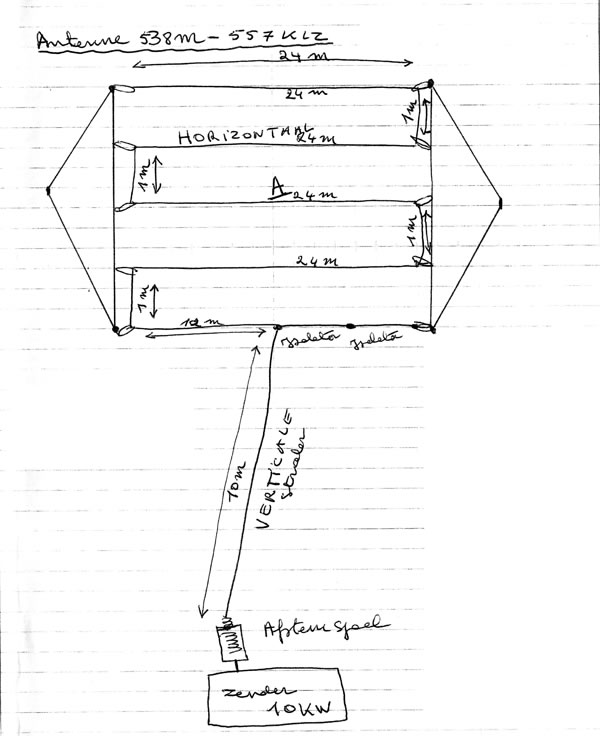 Antenne 538m - 557 KHZ
24 m
24 m
1m
HORIZONTAAL
24m
1m
A
24m
1m
24 m
1m
12 m
isolator isolator
10m
VERTICALE
straler
Afstem spoel
zender
10KW